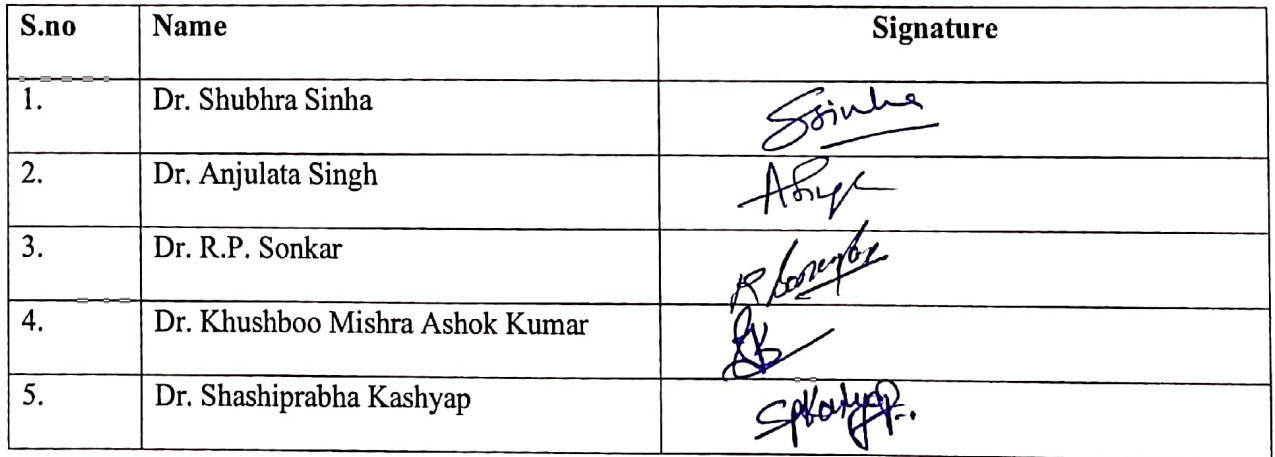 S.no Name Signature
1. Dr. Shubhra Sinha Ssinha
2. Dr. Anjulata Singh ASingh
3. Dr. R.P. Sonkar
4. Dr. Khushboo Mishra Ashok Kumar
5. Dr. Shashiprabha Kashyap SPKashyap